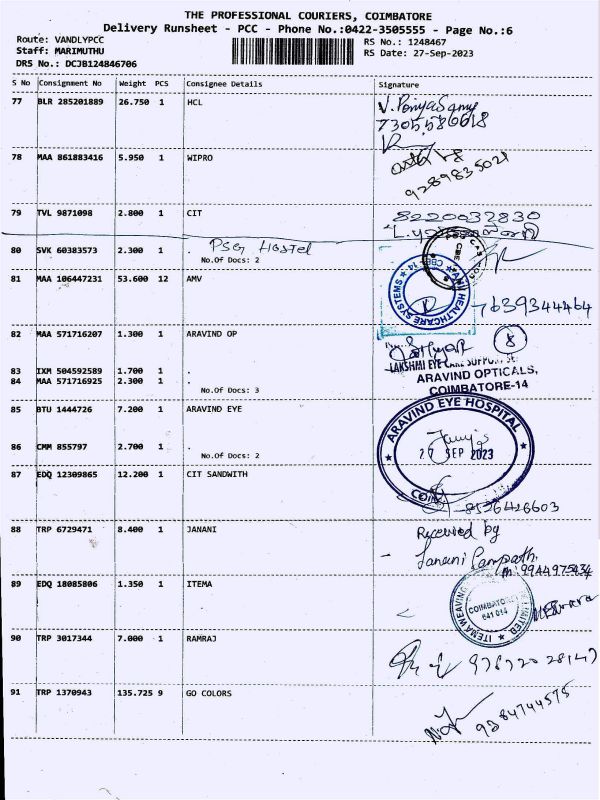 THE PROFESSIONAL COURIERS, COIMBATORE
Delivery Runsheet - PCC - Phone No.:0422-3505555 - Page No.:6
Route: VANDLYPCC RS No.: 1248467
Staff: MARIMUTHU RS Date: 27-Sep-2023
DRS No.: DCJB124846706
S No Consignment No Weight PCS Consignee Details Signature
77 BLR 285201889 26.750 1 HCL
7305580618
78 MAA 861883416 5.950 1 WIPRO
9289835021
79 TVL 9871098 2.800 1 CIT 8220032830
80 SVK 60383573 2.300 1 . PSG Hostel
No.Of Docs: 2
81 MAA 106447231 53.600 12 AMV
HEALTHCARE SYSTEMS
7639344464
82 MAA 571716207 1.300 1 ARAVIND OP 8
83 IXM 504592589 1.700 1 .
84 MAA 571716925 2.300 1 .
No.Of Docs: 3
LAKSHMI EYE CARE SUPPORT
ARAVIND OPTICALS,
COIMBATORE-14
85 BTU 1444726 7.200 1 ARAVIND EYE
ARAVIND EYE HOSPITAL
27 SEP 2023
86 CMM 855797 2.700 1 .
No.Of Docs: 2
87 EDQ 12309865 12.200 1 CIT SANDWITH
8526426603
88 TRP 6729471 8.400 1 JANANI Received by
Janani Sampath.
Ph: 9944975434
89 EDQ 18085806 1.350 1 ITEMA
ITEMA WEAVING
COIMBATORE
641 014
90 TRP 3017344 7.000 1 RAMRAJ
91 TRP 1370943 135.725 9 GO COLORS
9384744575